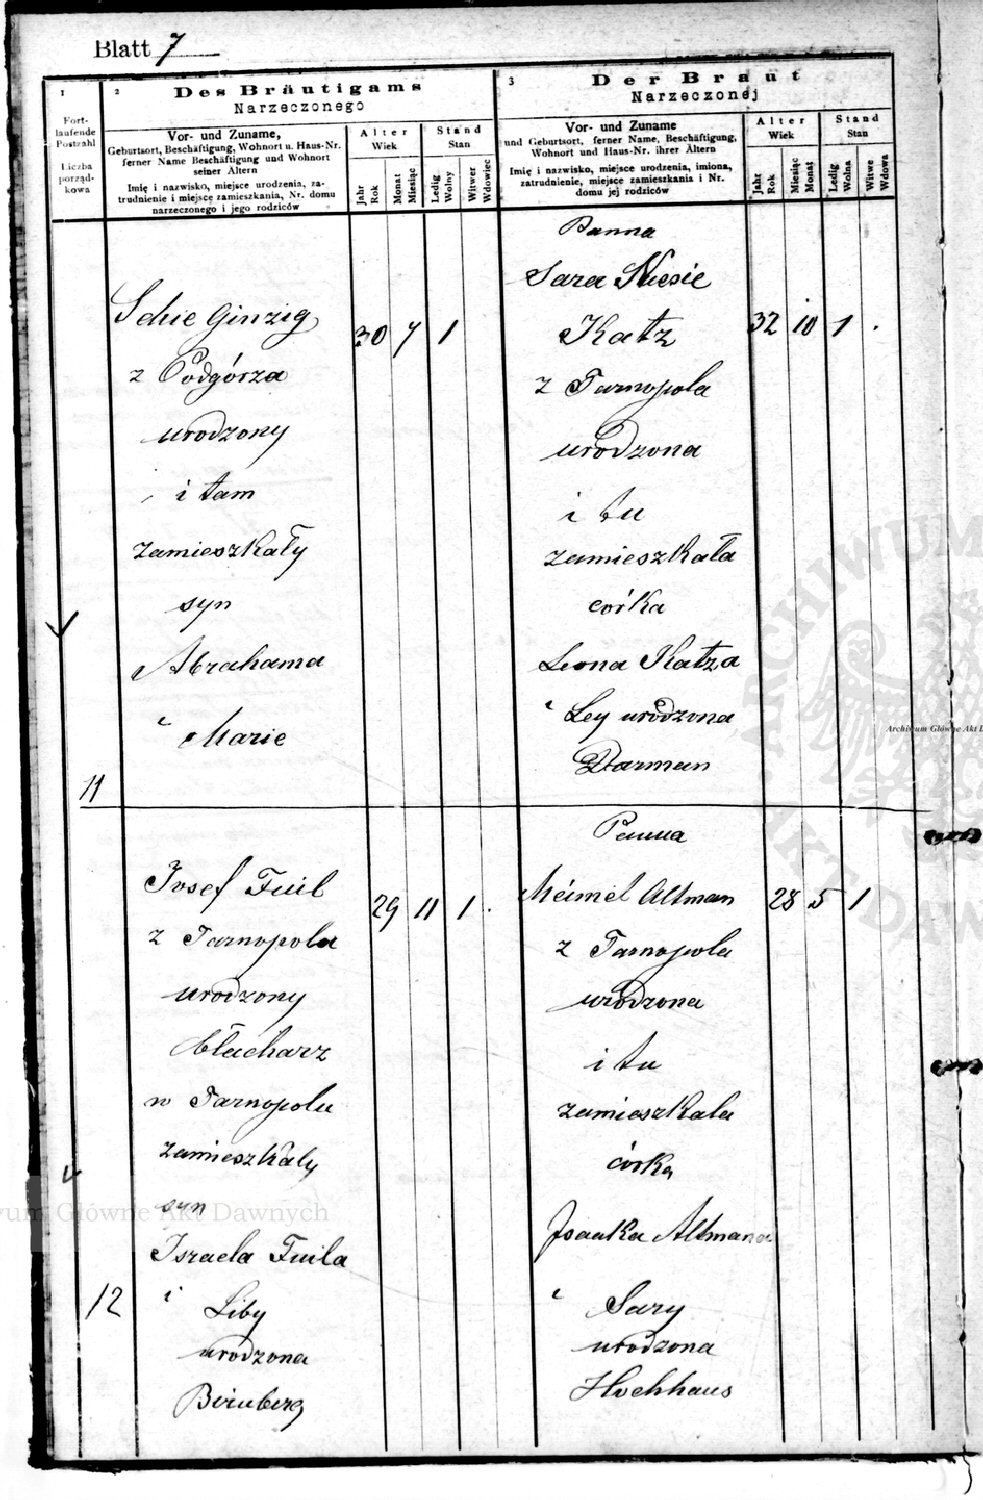 Blatt 7
1
Fort-
laufende
Postzahl
Liczba
porząd-
kowa
2
Des Bräutigams
Narzeczonego
Vor- und Zuname,
Geburtsort, Beschäftigung, Wohnort u. Haus-Nr.
ferner Name Beschäftigung und Wohnort
seiner Altern
Imię i nazwisko, miejsce urodzenia, za-
trudnienie i miejsce zamieszkania, Nr. domu
narzeczonego i jego rodziców
Alter
Wiek
Jahr
Rok
Monat
Miesiąc
Stand
Stan
Ledig
Wolny
Witwer
Wdowiec
3
Der Braut
Narzeczonej
Vor- und Zuname
und Geburtsort, ferner Name, Beschäftigung,
Wohnort und Haus-Nr. ihrer Ältern
Imię i nazwisko, miejsce urodzenia, imiona,
zatrudnienie, miejsce zamieszkania i Nr.
domu jej rodziców
Alter
Wiek
Jahr
Rok
Miesiąc
Monat
Stand
Stan
Ledig
Wolna
Witwe
Wdowa
11
Schie Ginzig
z Podgórza
urodzony
i tam
zamieszkały
syn
Abrahama
i Marie
30 7 1
Panna
Sara
Katz
z Tarnopola
urodzona
i tu
zamieszkała
córka
Leona Katza
i Ley urodzona
32 10 1
12
Josef Fuil
z Tarnopola
urodzony
blacharz
w Tarnopolu
zamieszkały
syn
Israela Fuila
i Liby
urodzona
29 11 1
Panna
Altman
z Tarnopola
urodzona
i tu
zamieszkala
córka
Isaaka Altmana
i Sary
urodzona
Hochhaus
28 5 1
ARCHIWUM
AKT DAW
Archiwum Główne Akt D
um Główne Akt Dawnych